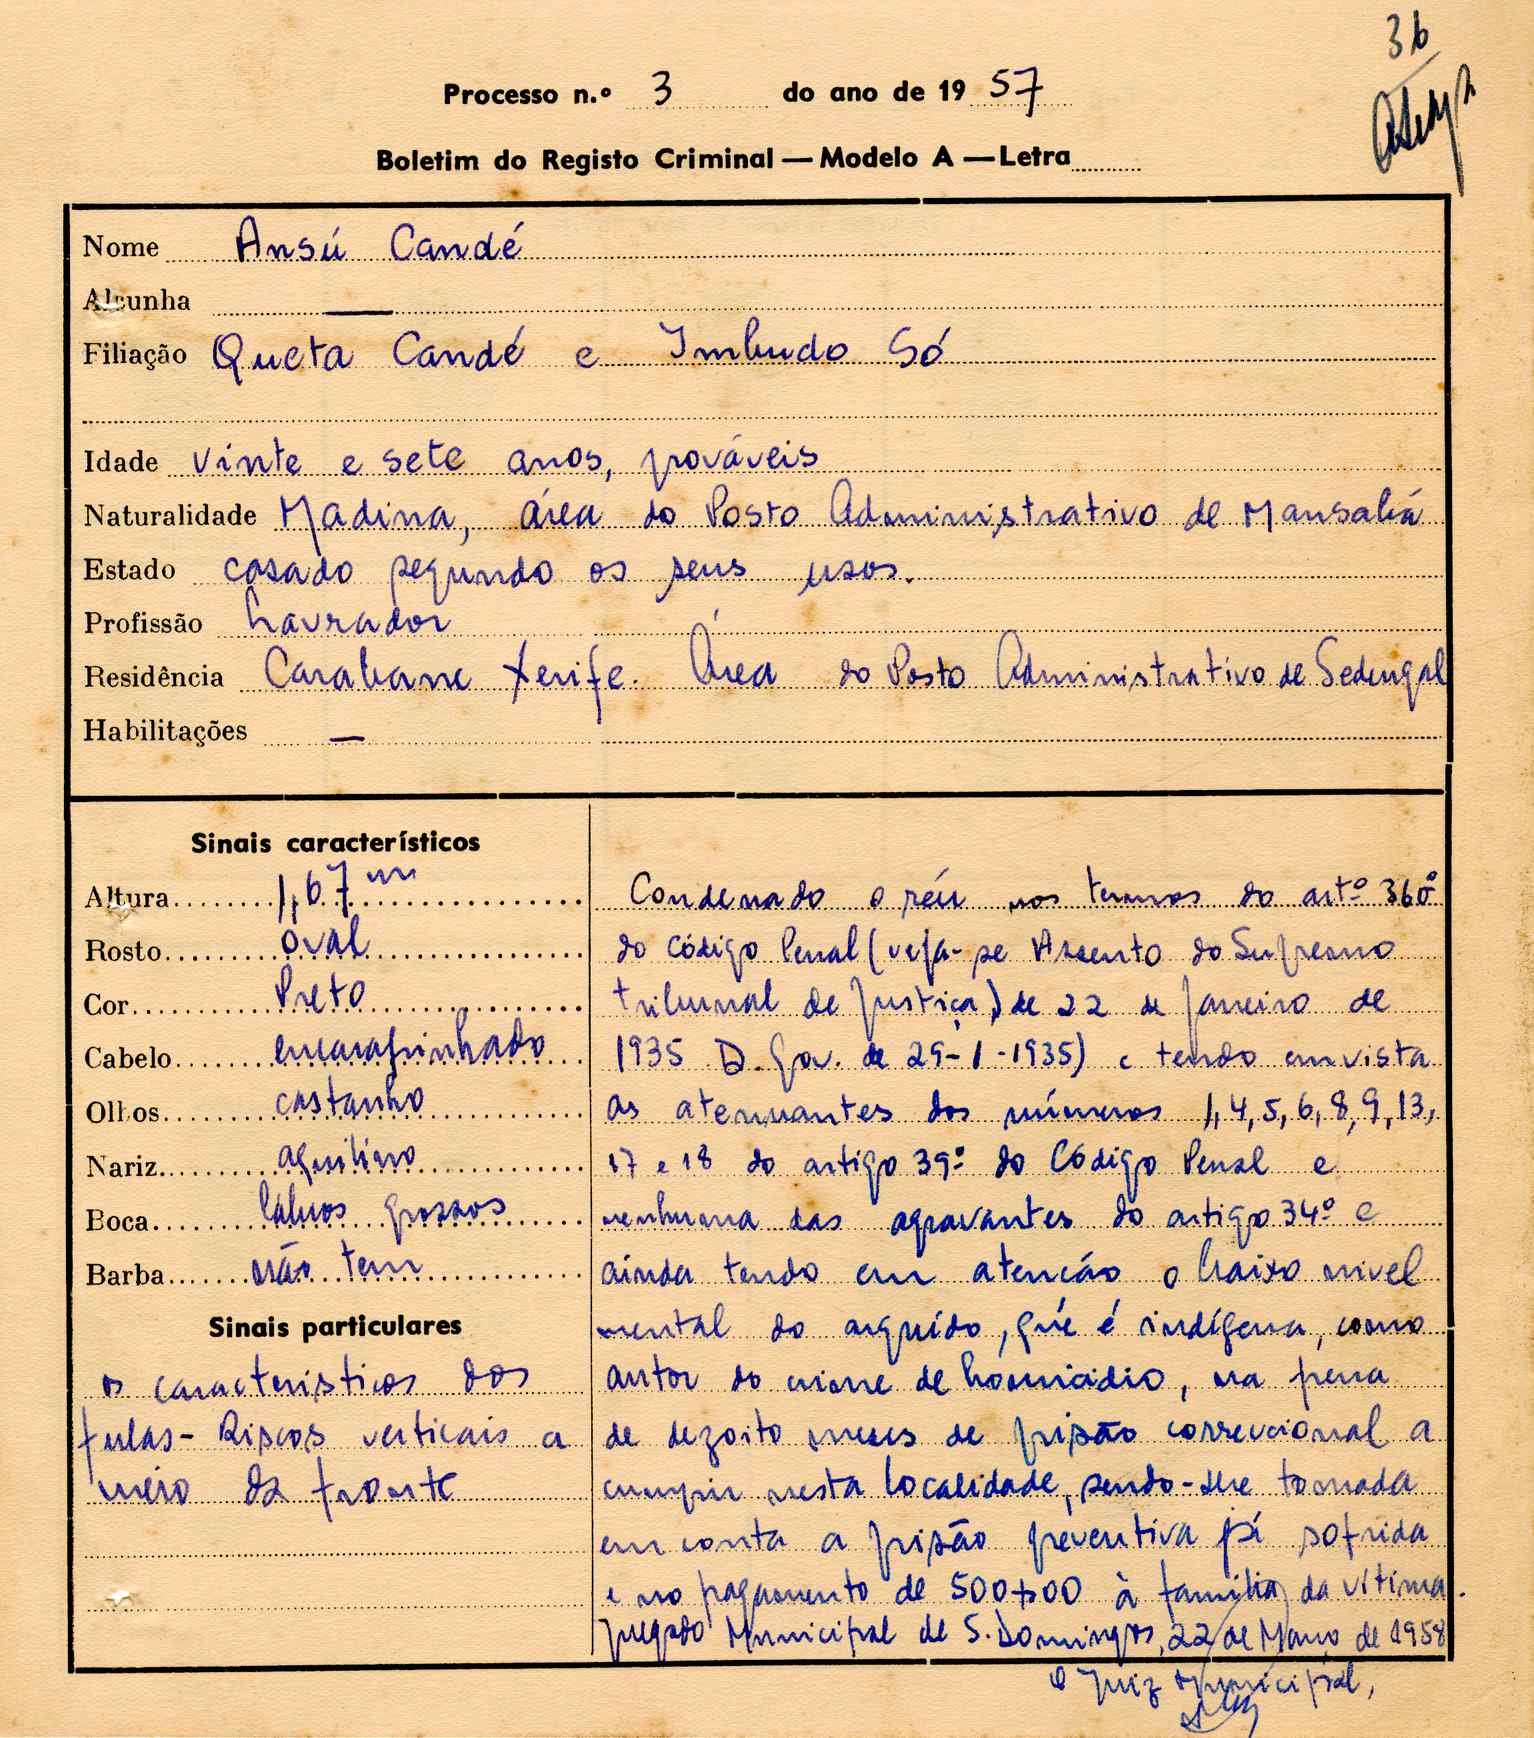 36
Processo n.º 3 do ano de 1957
Boletim do Registo Criminal — Modelo A — Letra
Nome Ansú Candé
Alcunha —
Filiação Queta Candé e Imbudo Só
Idade vinte e sete anos, prováveis
Naturalidade Madina, área do Posto Administrativo de Mansabá
Estado casado segundo os seus usos.
Profissão Lavrador
Residência Carabane Xerife. Área do Posto Administrativo de Sedengal
Habilitações —
Sinais característicos
Altura 1,67 m
Rosto oval
Cor Preto
Cabelo encarapinhado
Olhos castanho
Nariz aquilino
Boca lábios grossos
Barba não tem
Sinais particulares
os caracteristicos dos
fulas - Riscos verticais a
meio da fronte
Condenado o réu nos termos do artº 360º
do Código Penal (veja-se Assento do Supremo
Tribunal de Justiça) de 22 de Janeiro de
1935 D. Gov. de 29-1-1935) e tendo em vista
as atenuantes dos números 1, 4, 5, 6, 8, 9, 13,
17 e 18 do artigo 39º do Código Penal e
nenhuma das agravantes do artigo 34º e
ainda tendo em atenção o baixo nivel
mental do arguído, que é indígena, como
autor do crime de homicidio, na pena
de dezoito meses de prisão correccional a
cumprir nesta localidade, sendo-lhe tomada
em conta a prisão preventiva já sofrida
e no pagamento de 500$00 à família da vítima.
Julgado Municipal de S. Domingos, 22 de de 1958
O Juiz Municipal,